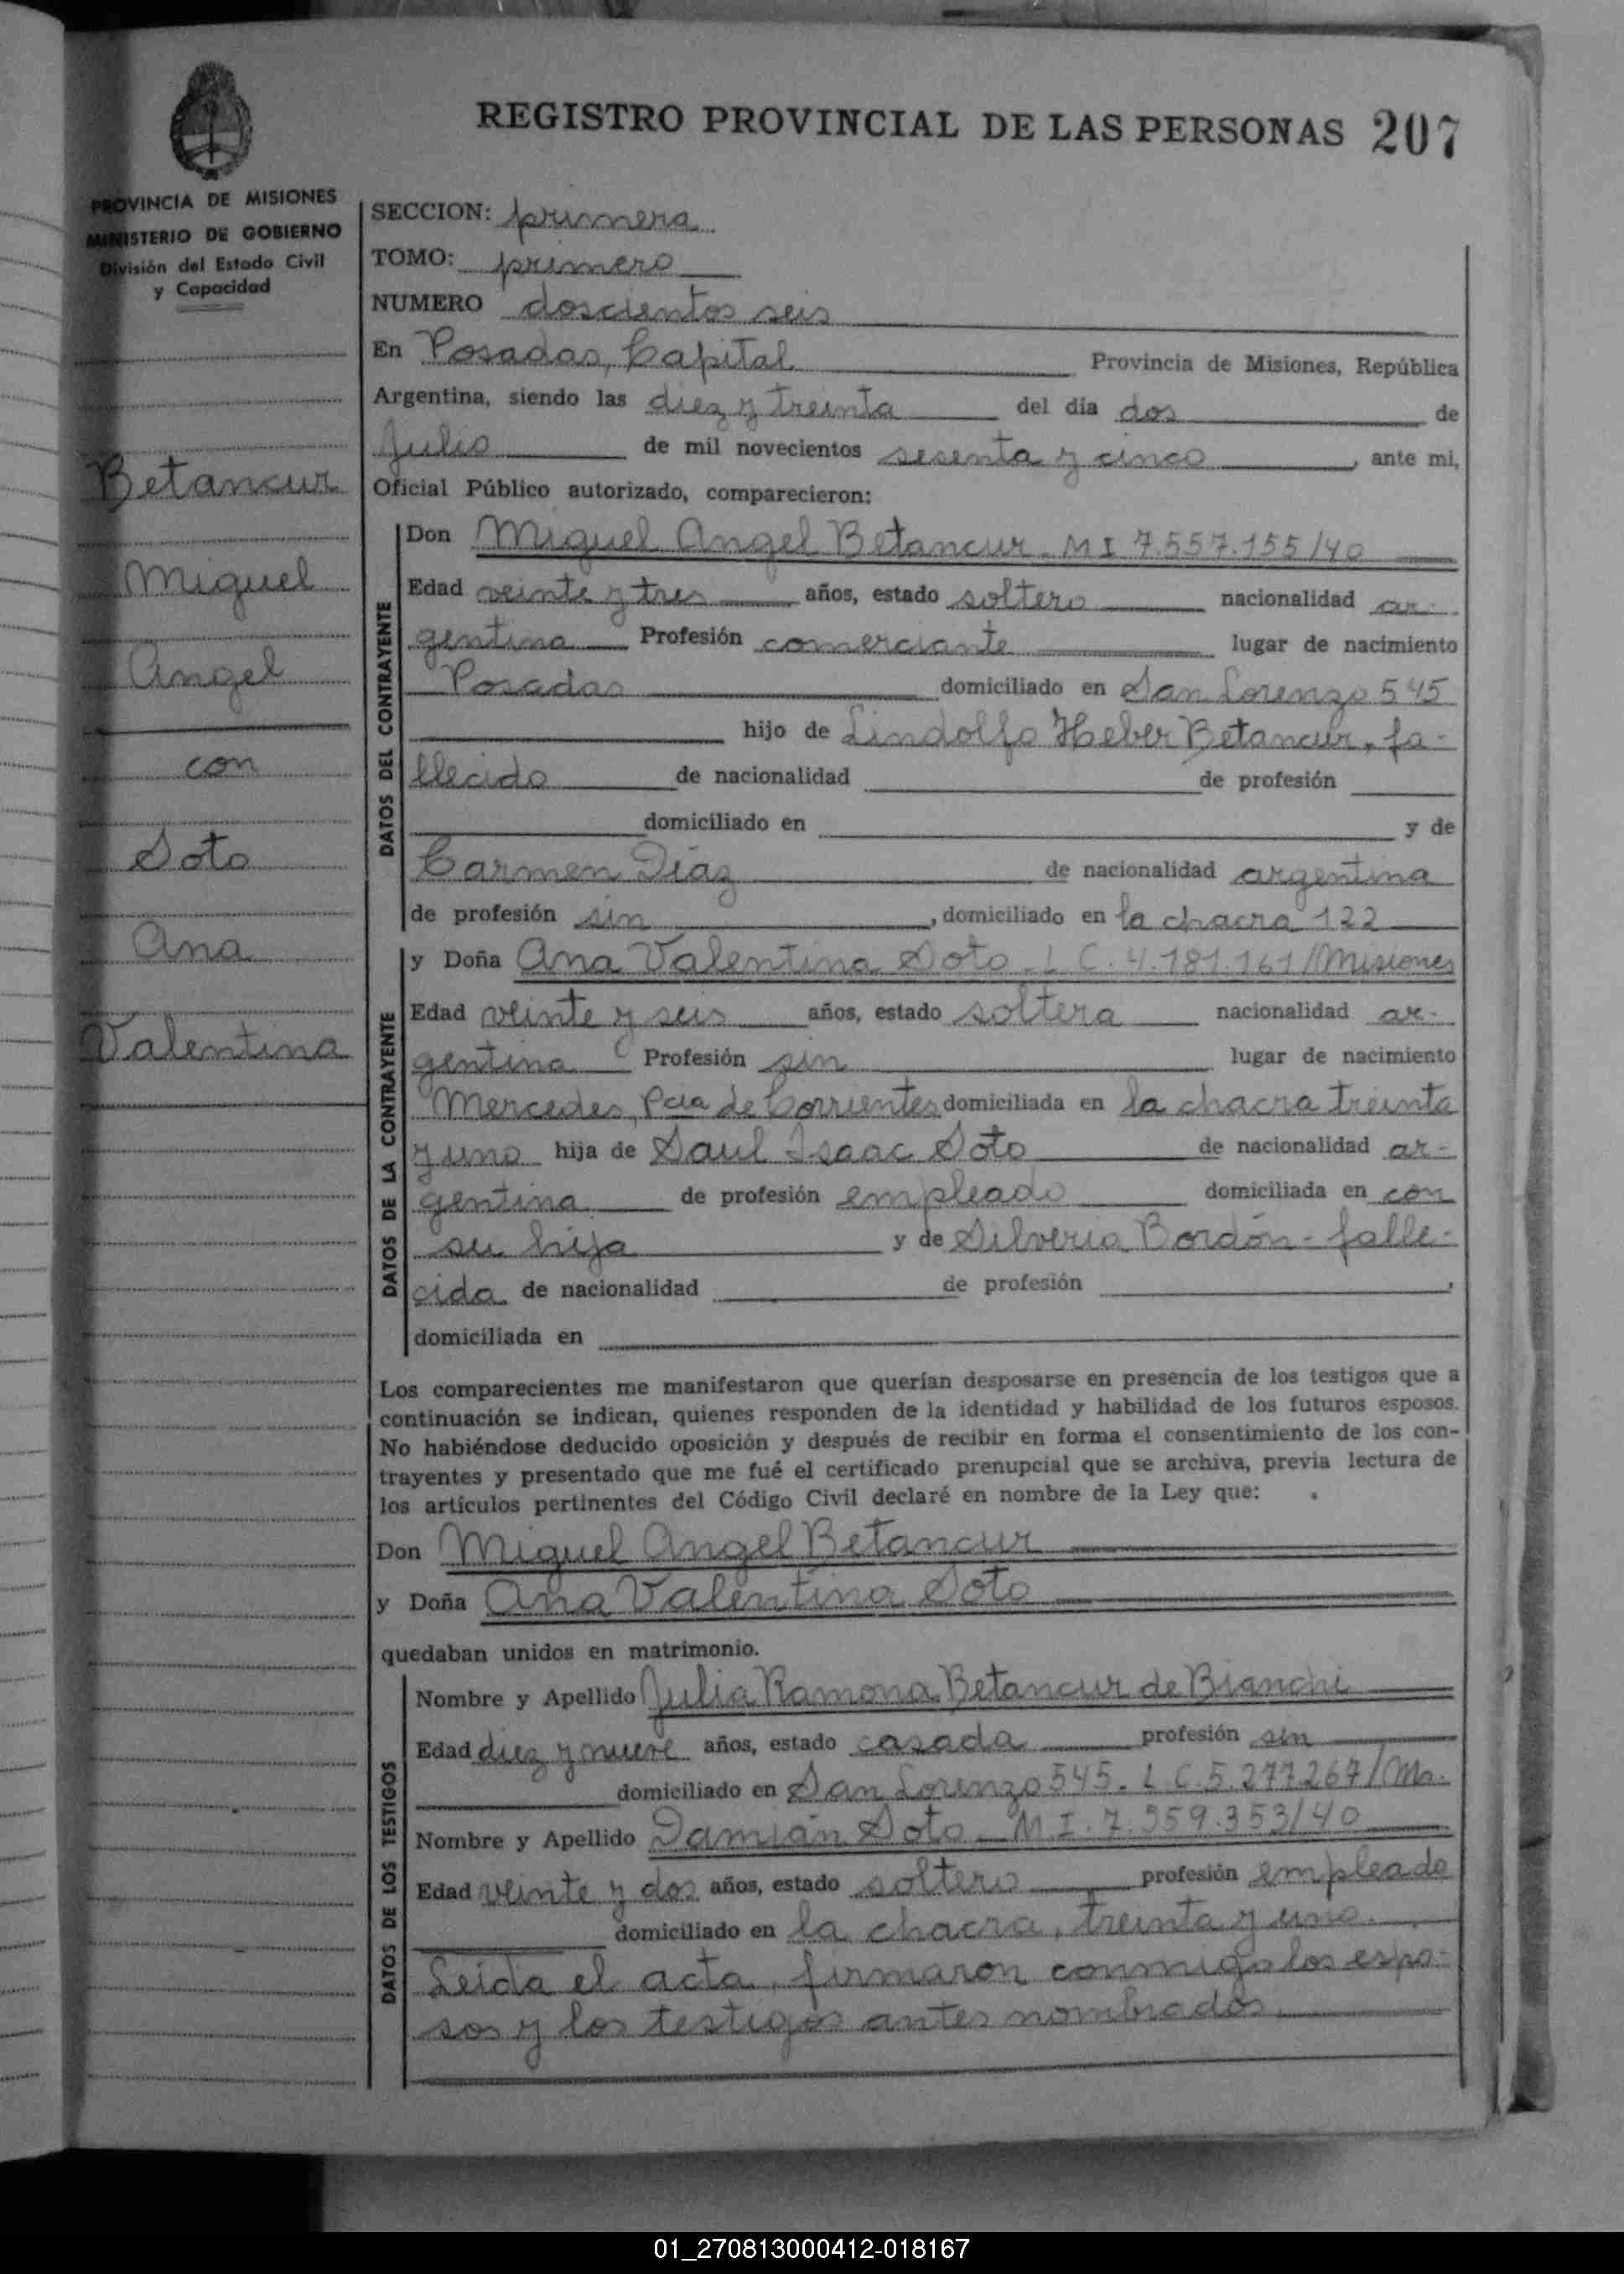 REGISTRO PROVINCIAL DE LAS PERSONAS 207
PROVINCIA DE MISIONES
MINISTERIO DE GOBIERNO
División del Estado Civil
y Capacidad
Betancur
Miguel
Angel
con
Soto
Ana
Valentina
SECCION: primera
TOMO: primero
NUMERO doscientos seis
En Posadas, Capital Provincia de Misiones, República
Argentina, siendo las diez y treinta del día dos de
Julio de mil novecientos sesenta y cinco, ante mi,
Oficial Público autorizado, comparecieron:
DATOS DEL CONTRAYENTE
Don Miguel Angel Betancur - M I 7.557.155/40
Edad veinte y tres años, estado soltero nacionalidad ar-
gentina Profesión comerciante lugar de nacimiento
Posadas domiciliado en San Lorenzo 545
hijo de Lindolfo Heber Betancur, fa-
llecido de nacionalidad de profesión
domiciliado en y de
Carmen Díaz de nacionalidad argentina
de profesión sin, domiciliado en la chacra 122
DATOS DE LA CONTRAYENTE
y Doña Ana Valentina Soto - L C. 4.181.161/Misiones
Edad veinte y seis años, estado soltera nacionalidad ar-
gentina Profesión sin lugar de nacimiento
Mercedes, Pcia de Corrientes domiciliada en la chacra treinta
y uno hija de Saul Isaac Soto de nacionalidad ar-
gentina de profesión empleado domiciliada en con
su hija y de Silveria Bordón - falle-
cida de nacionalidad de profesión ,
domiciliada en
Los comparecientes me manifestaron que querían desposarse en presencia de los testigos que a
continuación se indican, quienes responden de la identidad y habilidad de los futuros esposos.
No habiéndose deducido oposición y después de recibir en forma el consentimiento de los con-
trayentes y presentado que me fué el certificado prenupcial que se archiva, previa lectura de
los artículos pertinentes del Código Civil declaré en nombre de la Ley que:
Don Miguel Angel Betancur
y Doña Ana Valentina Soto
quedaban unidos en matrimonio.
DATOS DE LOS TESTIGOS
Nombre y Apellido Julia Ramona Betancur de Bianchi
Edad diez y nueve años, estado casada profesión sin
domiciliado en San Lorenzo 545. L C. 5.277.267/Ms.
Nombre y Apellido Damián Soto - M I. 7.559.353/40
Edad veinte y dos años, estado soltero profesión empleado
domiciliado en la chacra, treinta y uno.
Leida el acta, firmaron conmigo los espo-
sos y los testigos antes nombrados.
01_270813000412-018167